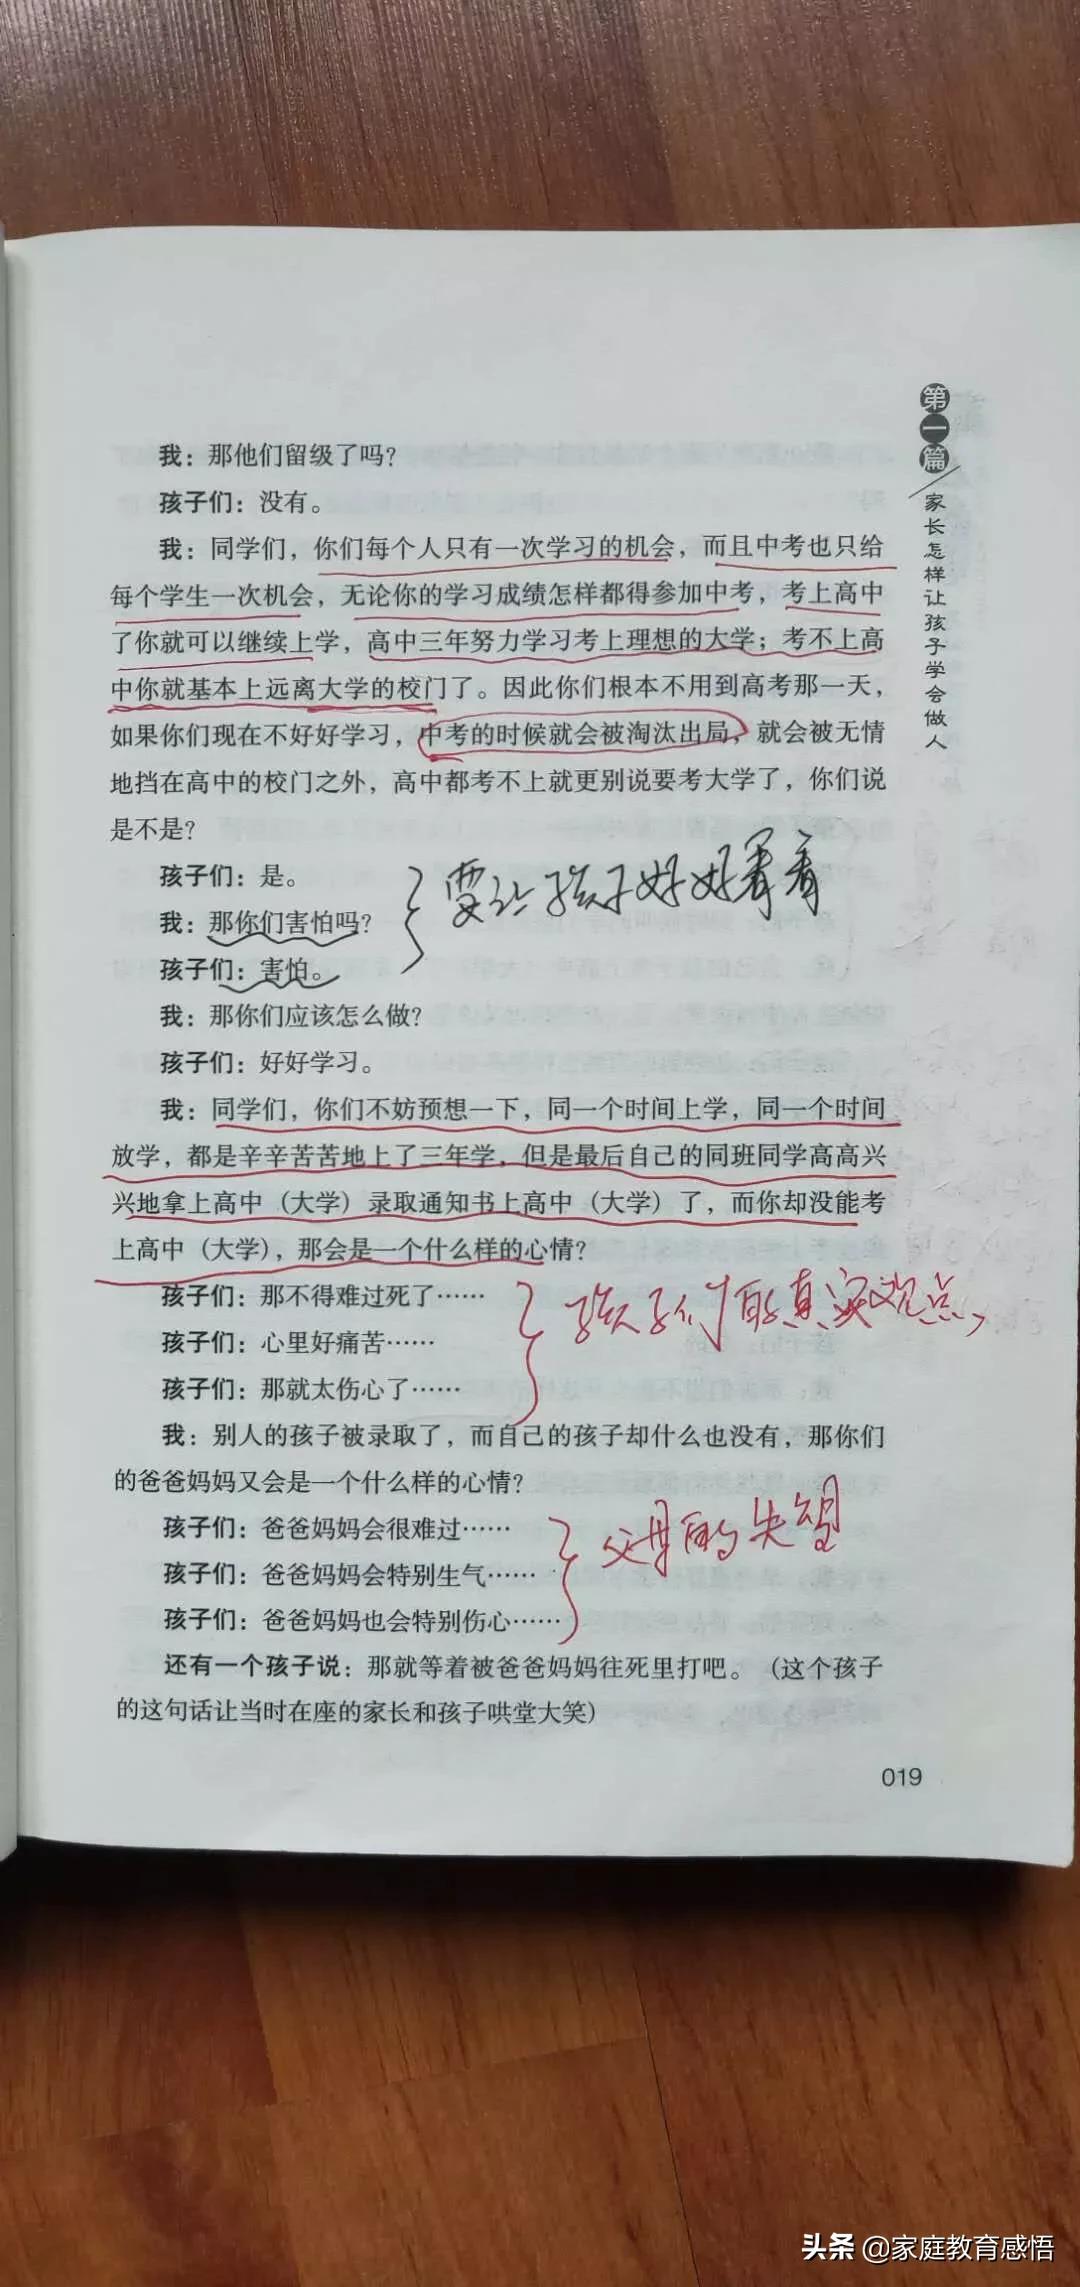 第一篇 / 家长怎样让孩子学会做人
我：那他们留级了吗？
孩子们：没有。
我：同学们，你们每个人只有一次学习的机会，而且中考也只给
每个学生一次机会，无论你的学习成绩怎样都得参加中考，考上高中
了你就可以继续上学，高中三年努力学习考上理想的大学；考不上高
中你就基本上远离大学的校门了。因此你们根本不用到高考那一天，
如果你们现在不好好学习，中考的时候就会被淘汰出局，就会被无情
地挡在高中的校门之外，高中都考不上就更别说要考大学了，你们说
是不是？
孩子们：是。
我：那你们害怕吗？
孩子们：害怕。
要让孩子好好看看
我：那你们应该怎么做？
孩子们：好好学习。
我：同学们，你们不妨预想一下，同一个时间上学，同一个时间
放学，都是辛辛苦苦地上了三年学，但是最后自己的同班同学高高兴
兴地拿上高中（大学）录取通知书上高中（大学）了，而你却没能考
上高中（大学），那会是一个什么样的心情？
孩子们：那不得难过死了……
孩子们：心里好痛苦……
孩子们：那就太伤心了……
孩子们的真实观点，
我：别人的孩子被录取了，而自己的孩子却什么也没有，那你们
的爸爸妈妈又会是一个什么样的心情？
孩子们：爸爸妈妈会很难过……
孩子们：爸爸妈妈会特别生气……
孩子们：爸爸妈妈也会特别伤心……
父母的失望
还有一个孩子说：那就等着被爸爸妈妈往死里打吧。（这个孩子
的这句话让当时在座的家长和孩子哄堂大笑）
019
头条 @家庭教育感悟